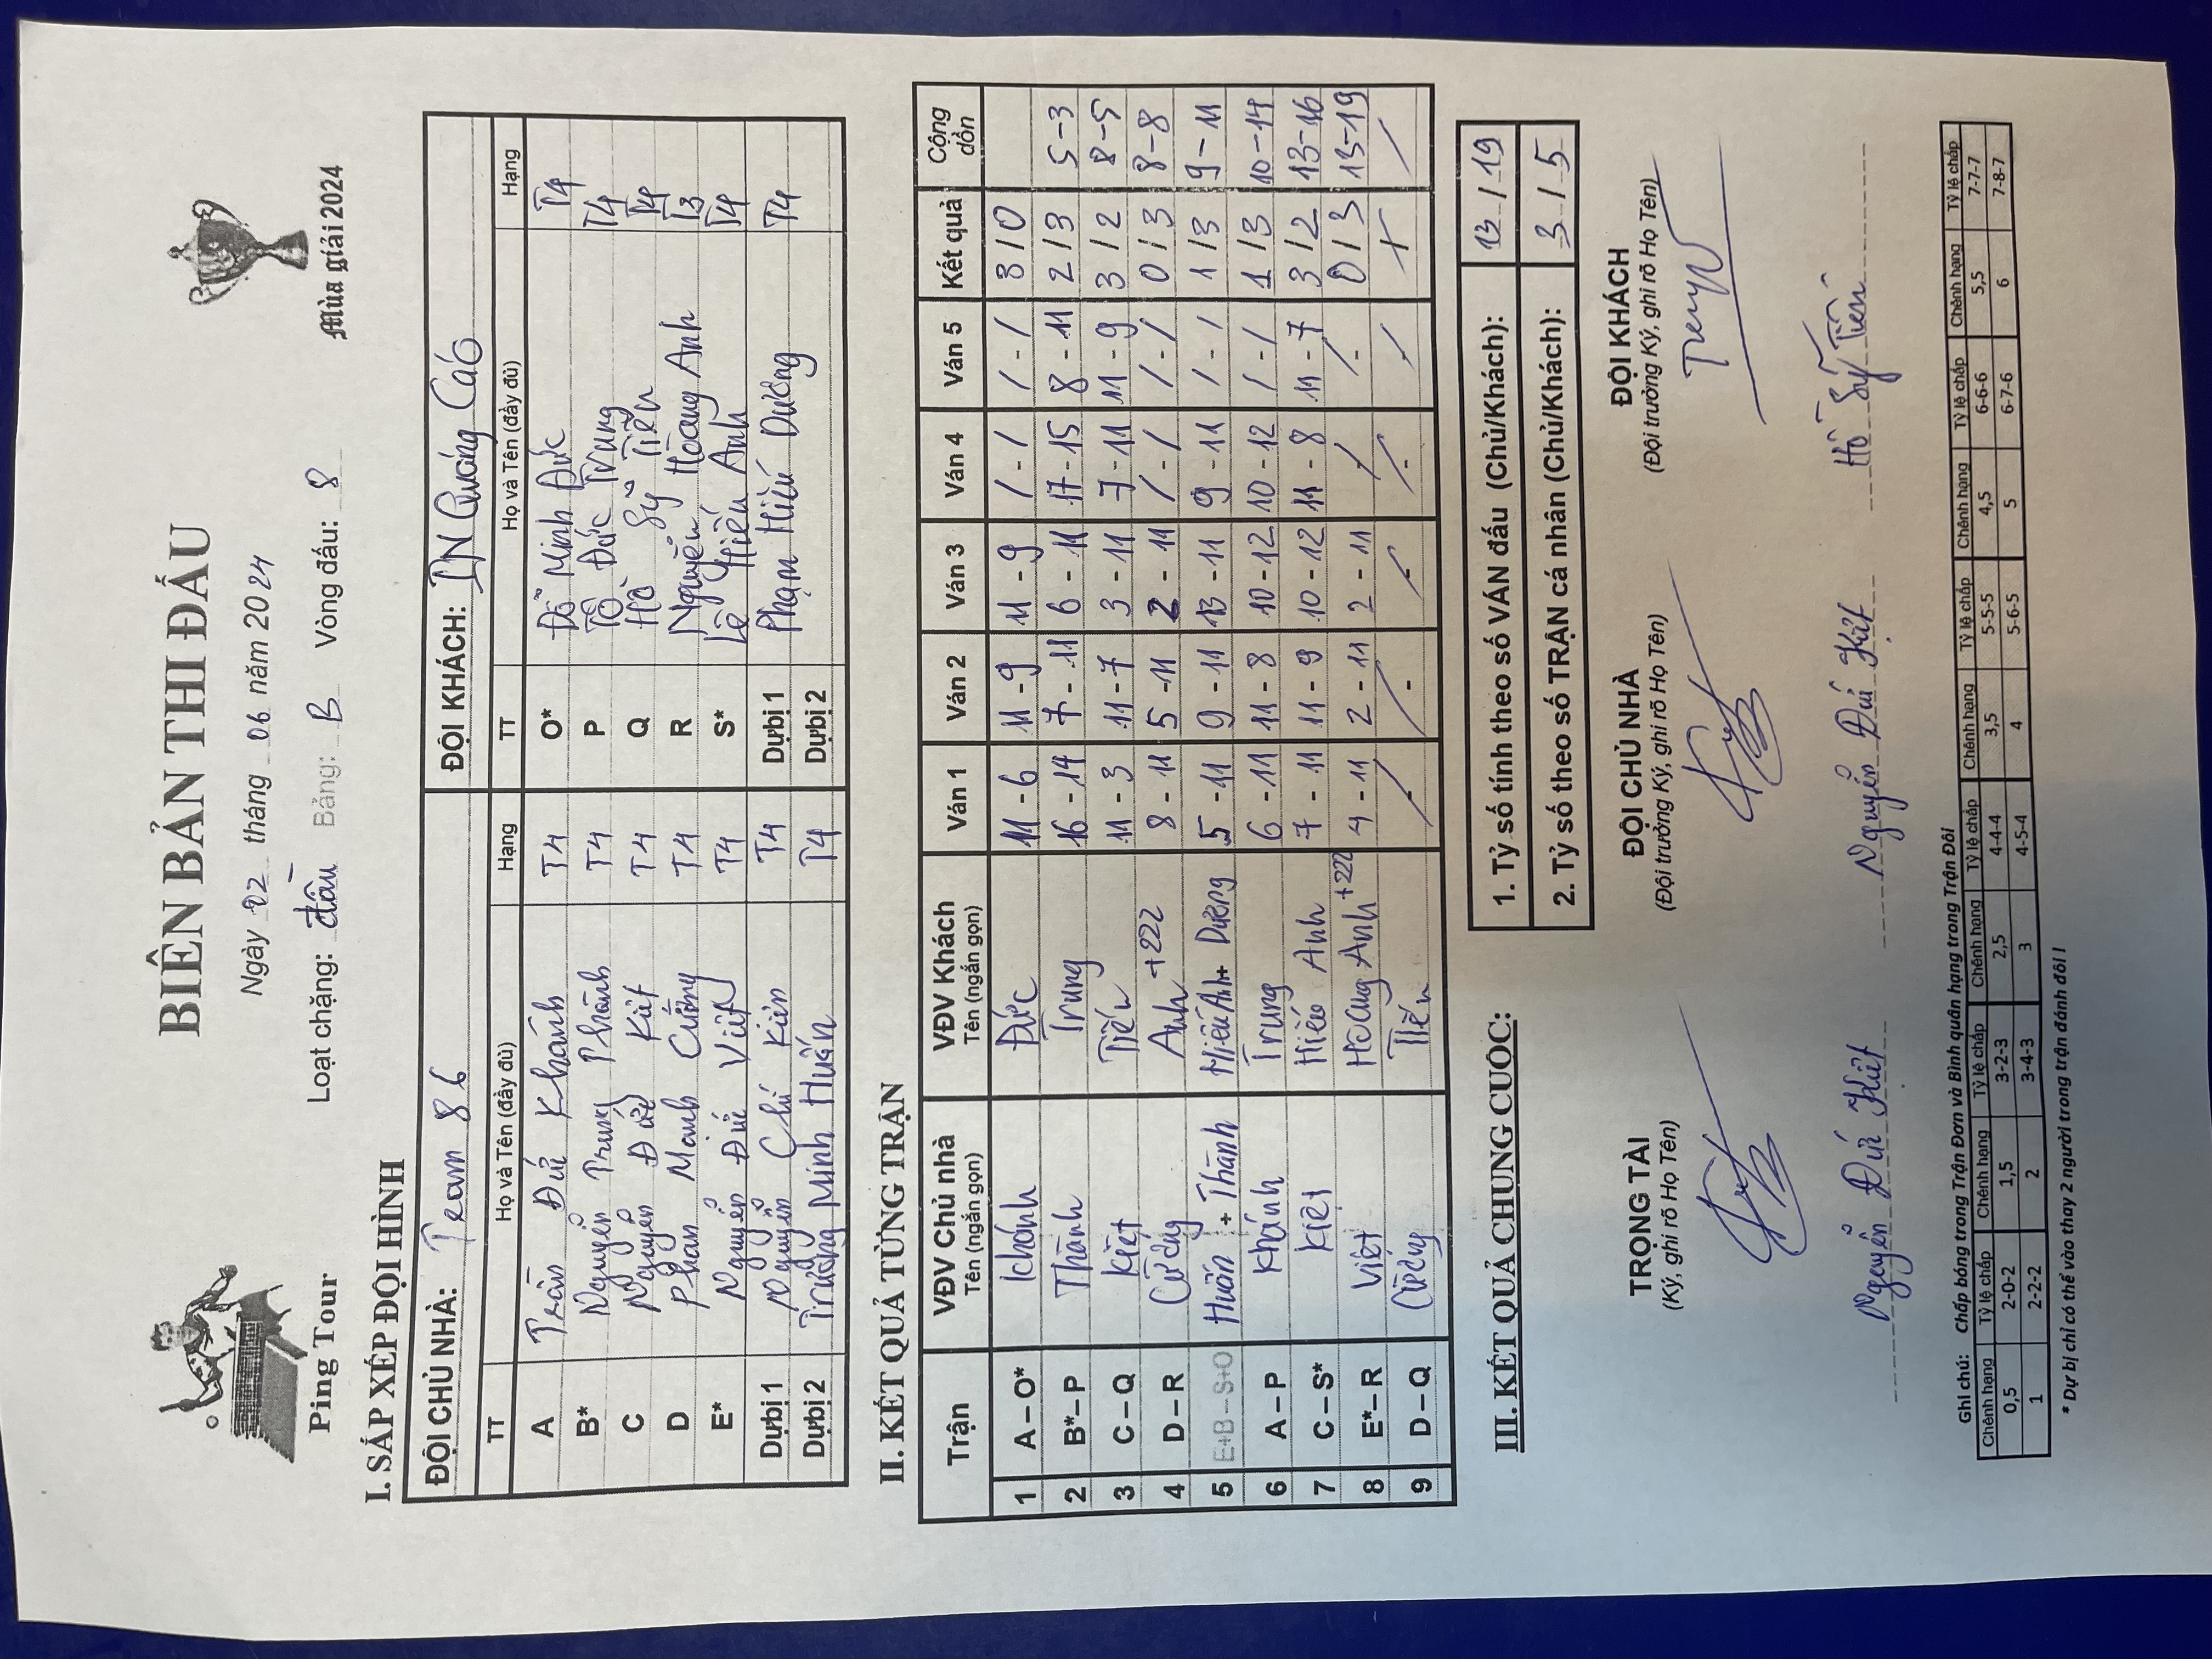 BIÊN BẢN THI ĐẤU
Ping Tour
Ngày 02 tháng 06 năm 2024
Loạt chặng: đấu Bảng: B Vòng đấu: 8
Mùa giải 2024
I. SẮP XẾP ĐỘI HÌNH
ĐỘI CHỦ NHÀ: Team 86 ĐỘI KHÁCH: IN Quảng Cáo
TT Họ và Tên (đầy đủ) Hạng TT Họ và Tên (đầy đủ) Hạng
A Trần Đức Khánh T4 O* Đỗ Minh Đức T4
B* Nguyễn Trung Thành T4 P Tô Đức Trung T4
C Nguyễn Đức Kiệt T4 Q Hồ Sỹ Tiến T4
D Phan Mạnh Cường T4 R Nguyễn Hoàng Anh T3
E* Nguyễn Đức Việt T4 S* Lê Hiếu Anh T4
Dự bị 1 Nguyễn Chí Kiên T4 Dự bị 1 Phạm Hiếu Dương T4
Dự bị 2 Trương Minh Huấn T4 Dự bị 2
II. KẾT QUẢ TỪNG TRẬN
Trận VĐV Chủ nhà VĐV Khách Ván 1 Ván 2 Ván 3 Ván 4 Ván 5 Kết quả Cộng dồn
Tên (ngắn gọn) Tên (ngắn gọn)
1 A – O* Khánh Đức 11 - 6 11 - 9 11 - 9 / - / / - / 3 / 0
2 B* – P Thành Trung 16 - 14 7 - 11 6 - 11 17 - 15 8 - 11 2 / 3 5 - 3
3 C – Q Kiệt Tiến 11 - 3 11 - 7 3 - 11 7 - 11 11 - 9 3 / 2 8 - 5
4 D – R Cường Anh +222 8 - 11 5 - 11 2 - 11 / - / / - / 0 / 3 8 - 8
5 E+B – S+O Huấn + Thành Hiếu Anh + Dương 5 - 11 9 - 11 13 - 11 9 - 11 / - / 1 / 3 9 - 11
6 A – P Khánh Trung 6 - 11 11 - 8 10 - 12 10 - 12 / - / 1 / 3 10 - 14
7 C – S* Kiệt Hiếu Anh 7 - 11 11 - 9 10 - 12 11 - 8 11 - 7 3 / 2 13 - 16
8 E* – R Việt Hoàng Anh +222 4 - 11 2 - 11 2 - 11 / / - 0 / 3 13 - 19
9 D – Q Cường Tiến / - / - / - / - /
III. KẾT QUẢ CHUNG CUỘC:
1. Tỷ số tính theo số VÁN đấu (Chủ/Khách): 13 / 19
2. Tỷ số theo số TRẬN cá nhân (Chủ/Khách): 3 / 5
TRỌNG TÀI ĐỘI CHỦ NHÀ ĐỘI KHÁCH
(Ký, ghi rõ Họ Tên) (Đội trưởng Ký, ghi rõ Họ Tên) (Đội trưởng Ký, ghi rõ Họ Tên)
Nguyễn Đức Kiệt Nguyễn Đức Kiệt Hồ Sỹ Tiến
Ghi chú: Chấp bóng trong Trận Đơn và Bình quân hạng trong Trận Đôi
Chênh hạng Tỷ lệ chấp Chênh hạng Tỷ lệ chấp Chênh hạng Tỷ lệ chấp Chênh hạng Tỷ lệ chấp Chênh hạng Tỷ lệ chấp Chênh hạng Tỷ lệ chấp
0,5 2-0-2 1,5 3-2-3 2,5 4-4-4 3,5 5-5-5 4,5 6-6-6 5,5 7-7-7
1 2-2-2 2 3-4-3 3 4-5-4 4 5-6-5 5 6-7-6 6 7-8-7
* Dự bị chỉ có thể vào thay 2 người trong trận đánh đôi !